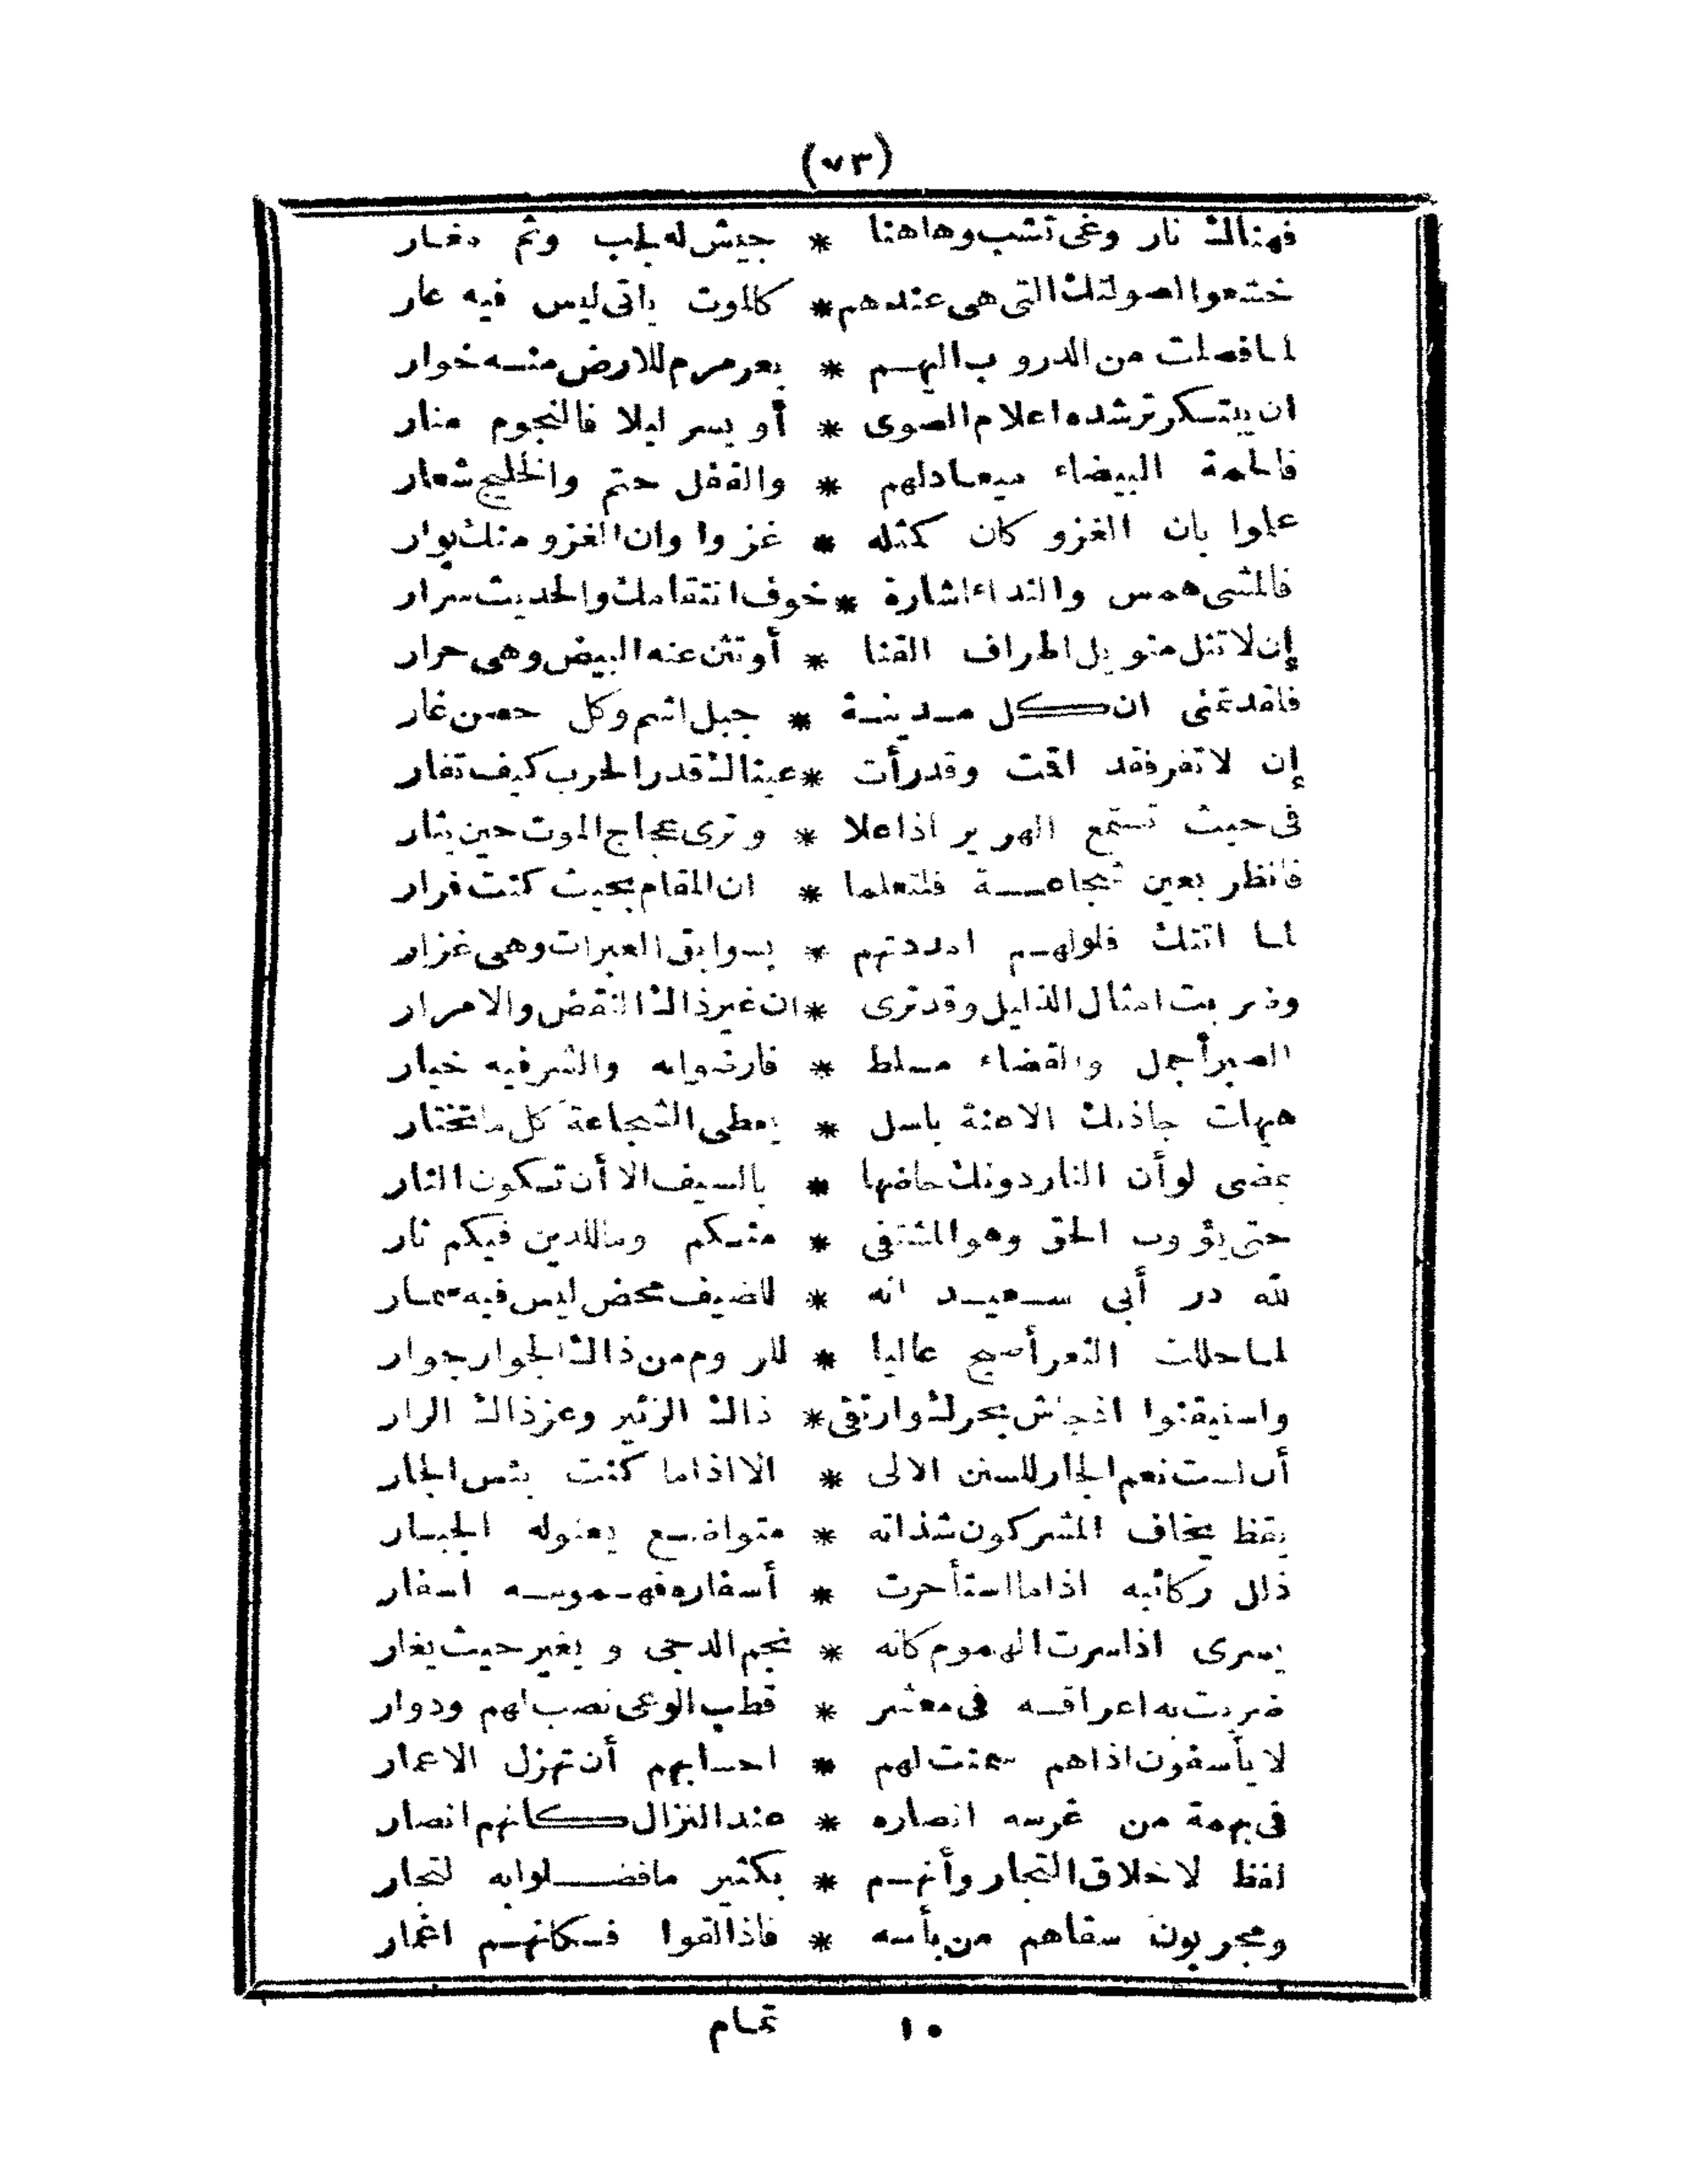 (٧٣)
فهنالك نار وغى تشب وهاهنا * جيش له لجب وثم مغار
خشعوا لصولتك التى هى عندهم * كالموت ياتى ليس فيه عار
لما فصلت من الدروب اليهم * بعرمرم للارض منه خوار
ان يبتسكر ترشده اعلام الصوى * أو يسر ليلا فالنجوم منار
فالحمة البيضاء ميعادلهم * والقفل حتم والخليج شعار
علموا بان الغزو كان كمثله * غزوا وان الغزو منك بوار
فالمشى همس والنداء اشارة * خوف انتقامك والحديث سرار
إن لا تنل منويل اطراف القنا * أو تثن عنه البيض وهى حرار
فلقد تمنى ان كل مدينة * جبل اشم وكل حصن غار
إن لا تفر فقد اقمت وقد رأت * عيناك قدر الحرب كيف تفار
فى حيث تستمع الهرير اذا علا * وترى عجاج الموت حين يثار
فانظر بعين شجاعة فلتعلما * ان المقام بحيث كنت فرار
لما اتتك فلولهم امددتهم * بسوابق العبرات وهى غزار
وضربت امثال الذليل وقد ترى * ان غير ذاك النقض والامرار
الصبر أجمل والقضاء مسلط * فارضوا به والشر فيه خيار
هيهات جاذبك الاعنة باسل * يعطى الشجاعة كل ما تختار
يمضى لو أن النار دونك خاضها * بالسيف الا أن تكون النار
حتى يؤوب الحق وهو المشتفى * منكم وما للدين فيكم ثار
لله در أبى سعيد انه * للضيف محض ليس فيه سمار
لما حللت الثغر أصبح عاليا * للروم من ذاك الجوار جوار
واستيقنوا اذ جاش بحرك وارتقى * ذاك الزئير وعز ذاك الزار
أن لست نعم الجار للسنن الالى * الا اذا ما كنت بئس الجار
يقظ يخاف المشركون شذاته * متواضع يعنو له الجبار
ذلل ركائبه اذا ما استأخرت * أسفاره فهمومه اسفار
يسرى اذا سرت الهموم كانه * نجم الدجى ويغير حيث يغار
ضربت به اعراقه فى معشر * قطب الوغى نصب لهم ودوار
لا يأسفون اذا هم سمنت لهم * احسابهم أن تهزل الاعمار
فى بهمة من غرسه انصاره * عند النزال كانهم انصار
لفظ لاخلاق التجار وأنهم * بكثير ما فضلوا به لتجار
ومجربون سقاهم من بأسه * فاذا لقوا فكانهم اغمار
١٠ تمام